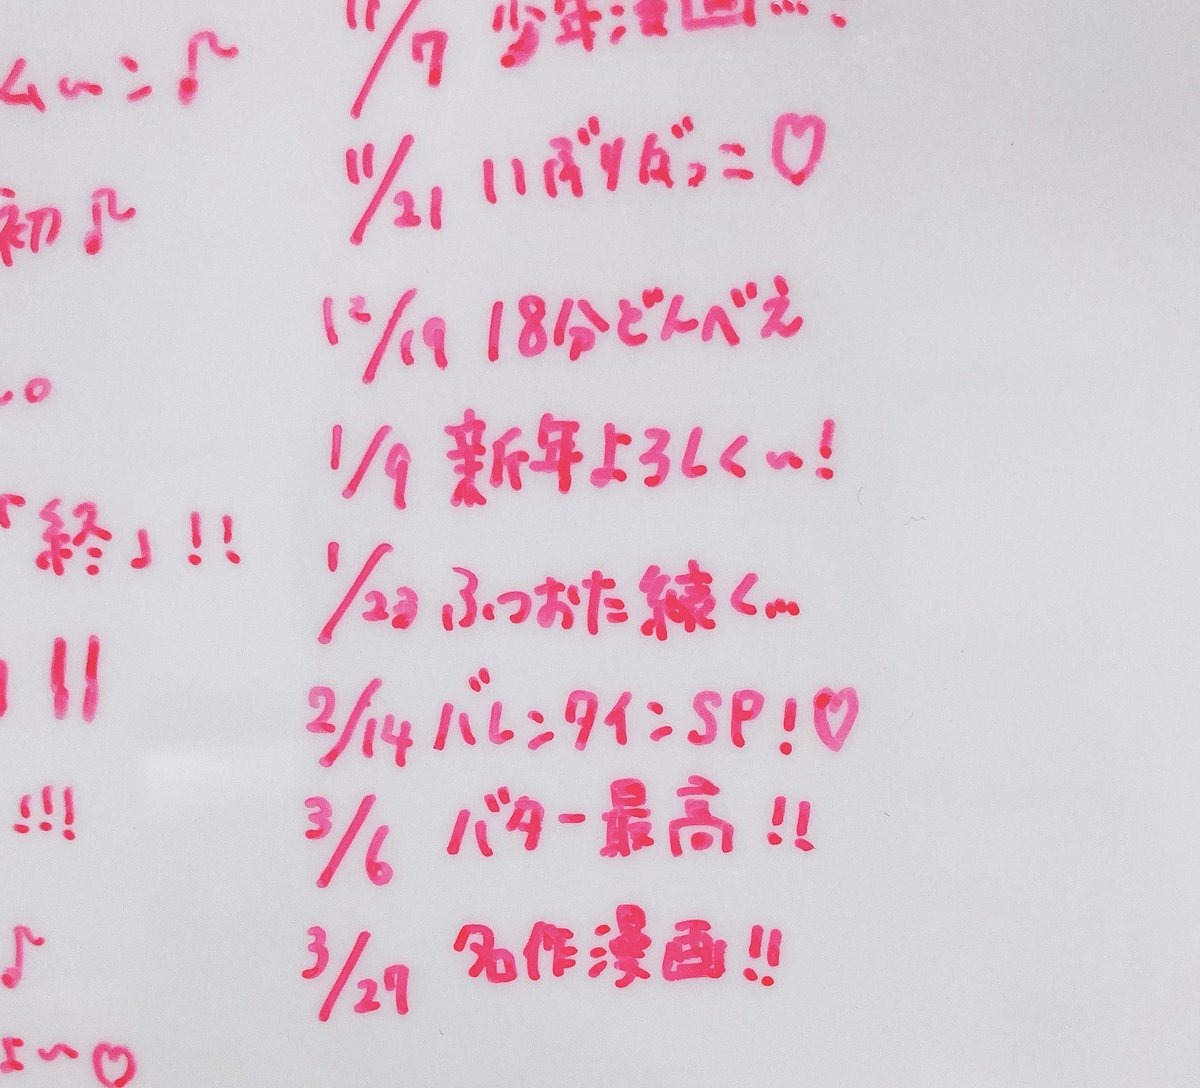 ムーン♪
初♪
。
「終」!!
!!
!!!
♪
よ〜♡
11/7 少年漫画…!
11/21 いぶりばっこ♡
12/19 18分どんべえ
1/9 新年よろしく〜!
1/23 ふつおた続く…
2/14 バレンタインSP!♡
3/6 バター最高!!
3/27 名作漫画!!